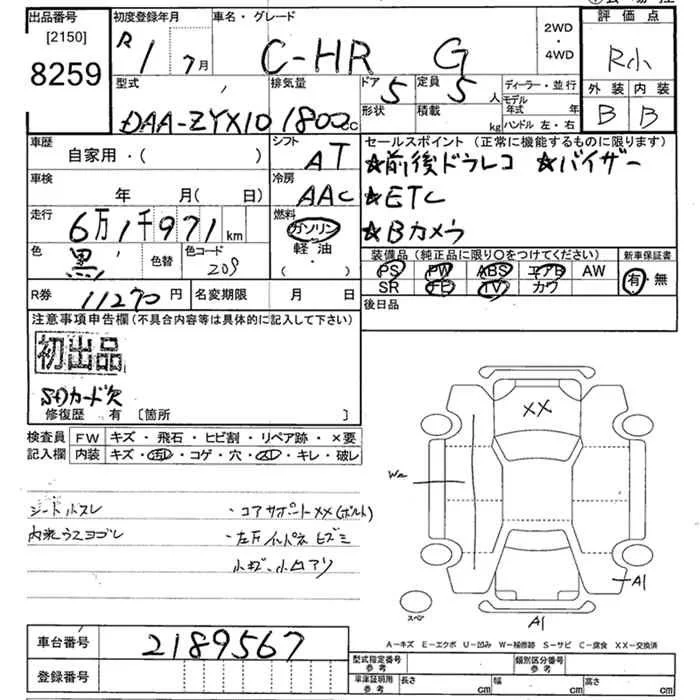 出品番号
[2150]
8259
初度登録年月
R1 7月
車名・グレード
C-HR G
2WD
・
4WD
評価点
R小
外装 内装
B B
型式
DAA-ZYX10
排気量
1800cc
ドア
5
定員
5人
形状
積載
kg
ディーラー・並行
モデル年式 年
ハンドル 左・右
車歴
自家用・( )
シフト
AT
セールスポイント (正常に機能するものに限ります)
☆前後ドラレコ ☆バイザー
☆ETC
☆Bカメラ
車検
年 月( 日)
冷房
AAC
走行
6万1千971km
燃料
ガソリン
軽油
( ・ )
色
黒
色替
色コード
209
装備品 (純正品に限り○をつけてください)
PS PW ABS エアB AW
SR TV カワ
新車保証書
有・無
R券
11270円
名変期限 月 日
後日品
注意事項申告欄 (不具合内容等は具体的に記入して下さい)
初出品
SDカード欠
修復歴 有 [箇所 ]
検査員 FW キズ・飛石・ヒビ割・リペア跡・×要
記入欄 内装 キズ・汚レ・コゲ・穴・スレ・キレ・破レ
シートスレ
内装ウスヨゴレ
・コアサポートXX(ボルト)
・左リインパネヒズミ
小キズ・小凹アリ
XX
W2
A1
A1
スペア
A=キズ E=エクボ U=凹み W=補修跡 S=サビ C=腐食 XX=交換済
車台番号
2189567
登録番号
型式指定番号 参考
類別区分番号 参考
車庫証明用 参考
長さ cm 幅 cm 高さ cm